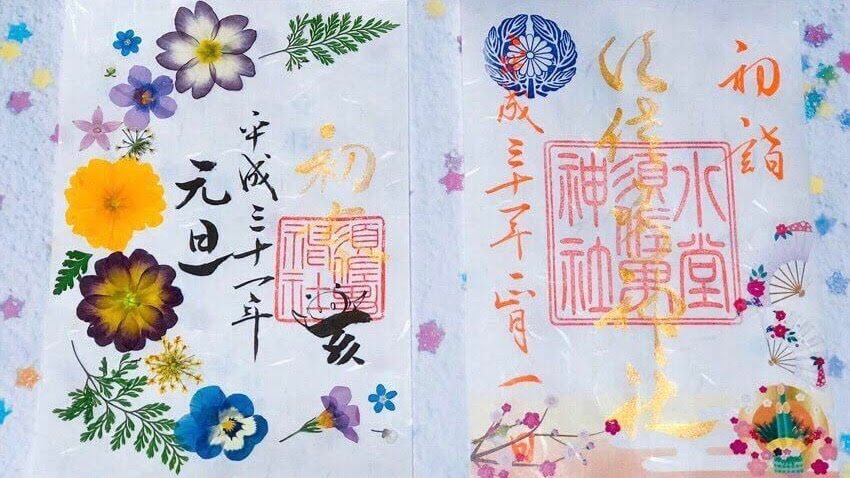 初
亥
平成三十一年
元旦
須佐男
神社
初詣
水堂
須佐男
神社
平成三十一年正月一日